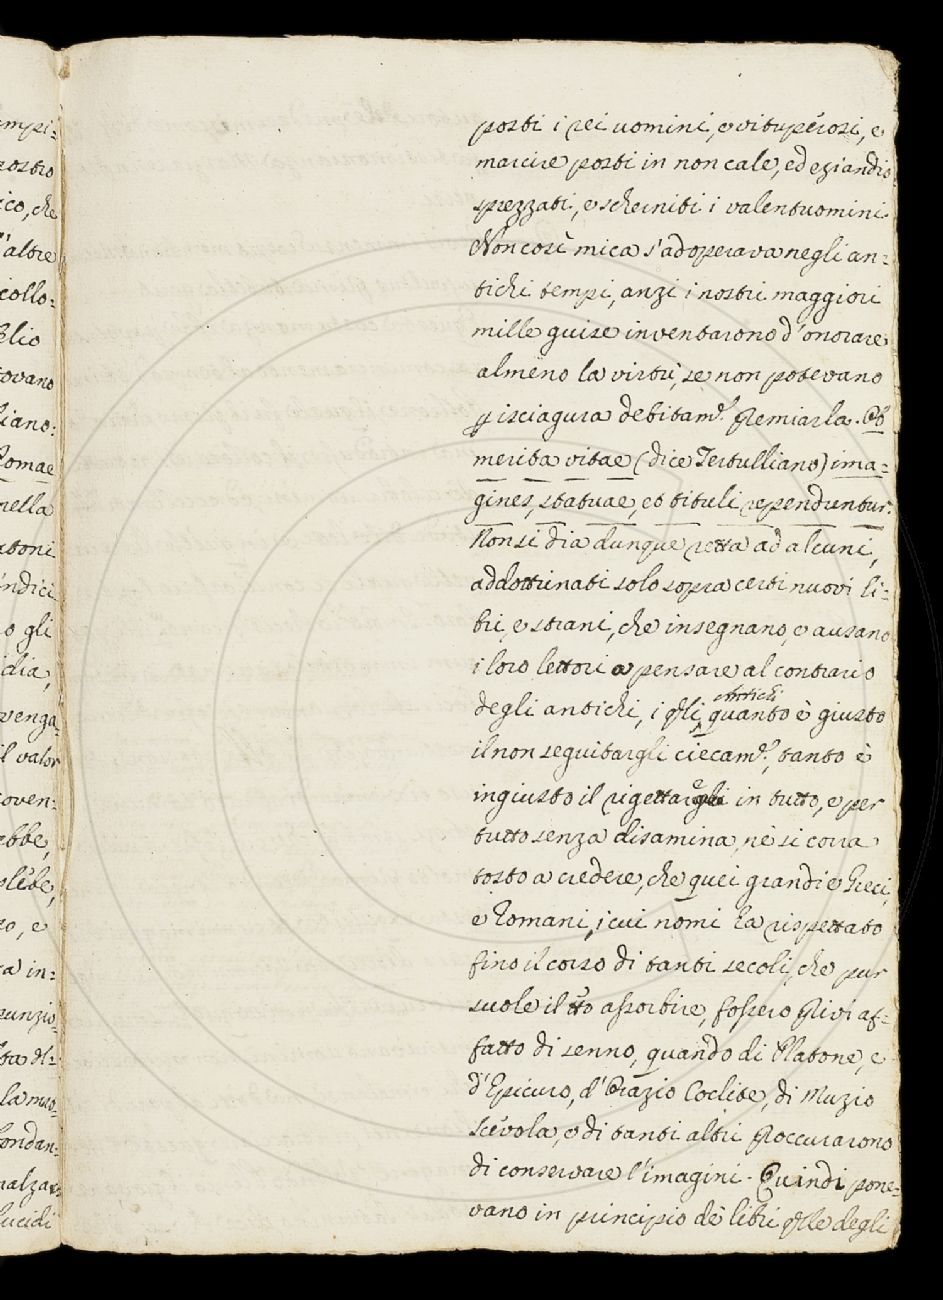 posti i rei uomini, e vituperosi, e
marcire posti in non cale, ed eziandio
sprezzati, e scherniti i valentuomini.
Non così mica s'adoperava negli an:
tichi tempi, anzi i nostri maggiori
mille guise inventarono d'onorare
almeno la virtù, se non potevano
p isciagura debitam.e premiarla. Ob
merita vitae (dice Tertulliano) ima:
gines, statuae, et tituli rependuntur.
Non si dia dunque retta ad alcuni,
addottrinati solo sopra certi nuovi li:
bri, e strani, che insegnano, e ausano
i loro lettori a pensare al contrario
degli antichi, i qli quanto è giusto
antichi
il non seguitargli ciecam.e, tanto è
ingiusto il rigettar in tutto, e per
tutto senza disamina, nè si corra
tosto a credere, che quei grandi e Greci,
e Romani, i cui nomi ha rispettato
fino il corso di tanti secoli, che pur
suole il tto assorbire, fossero privi af:
fatto di senno, quando di Platone, e
d'Epicuro, d'Orazio Coclite, di Muzio
Scevola, e di tanti altri proccurarono
di conservare l'imagini. Quindi pone:
vano in principio de' libri qlle degli
empi:
nostro
ico, che
l'altre
collo:
elio
tovano
liano:
Romae
nella
ntoni
indici
o gli
idia,
venga
il valor
oven:
ebbe,
plebe,
zo, e
ra in:
punzio
ta dl:
la mso
fondan:
nalza
lucidi